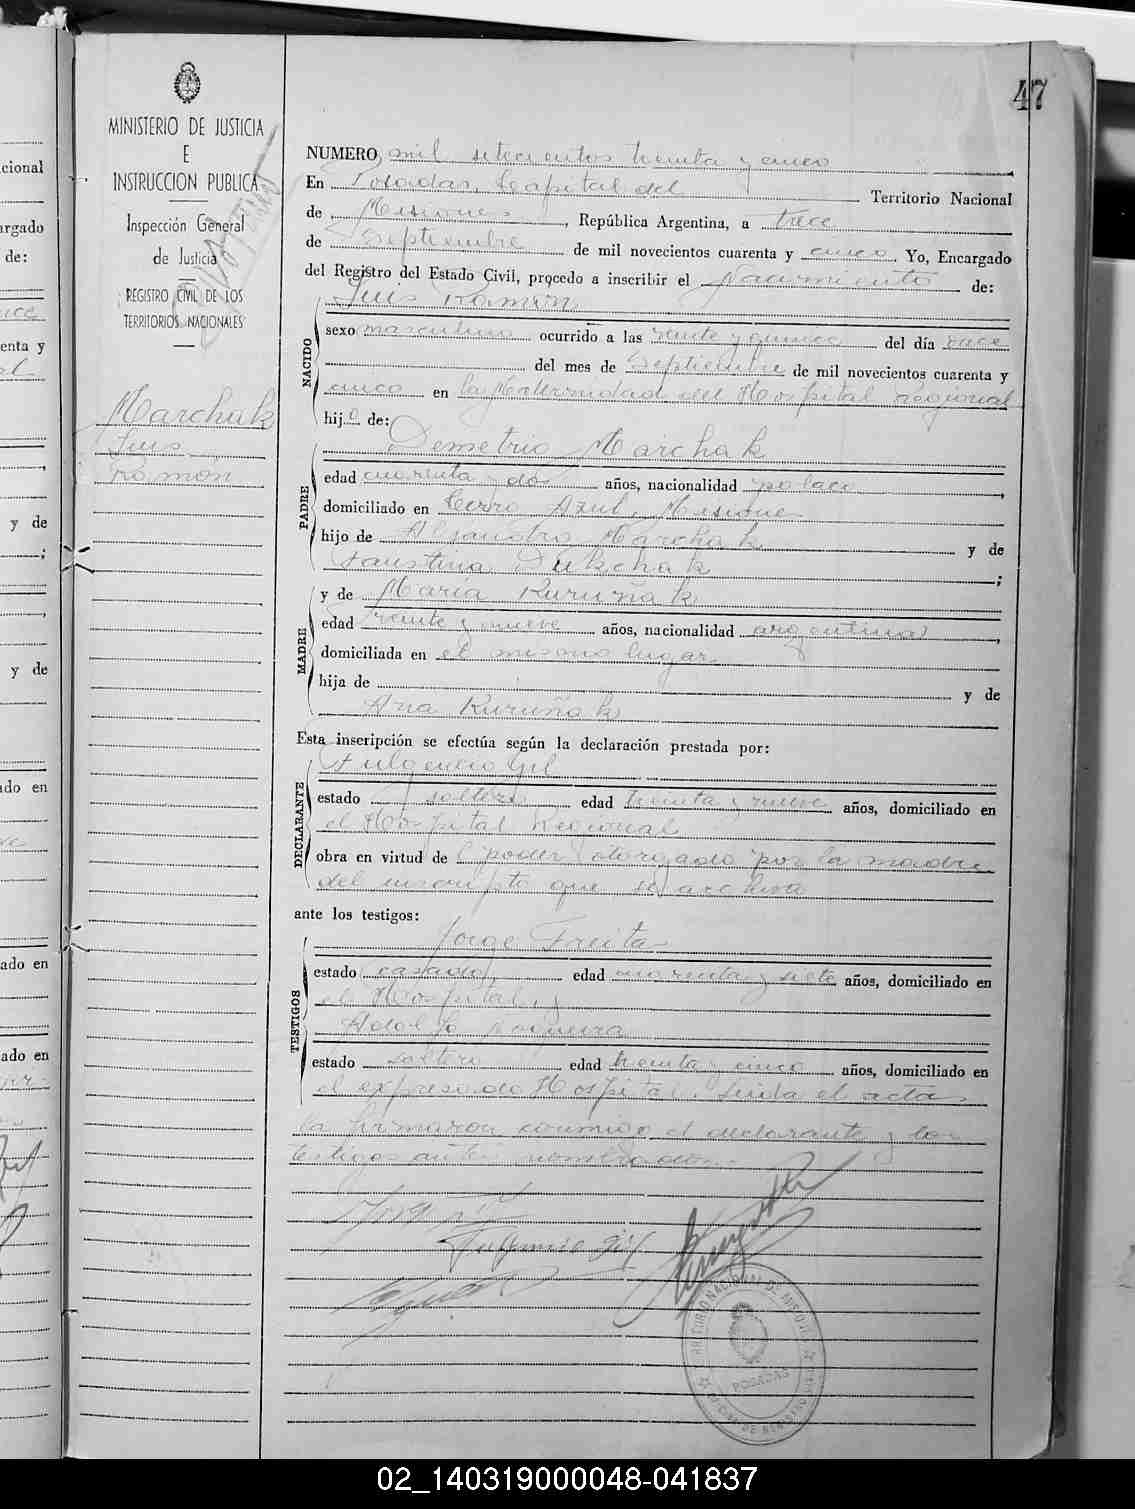 47
MINISTERIO DE JUSTICIA
E
INSTRUCCION PUBLICA
Inspección General
de Justicia
REGISTRO CIVIL DE LOS
TERRITORIOS NACIONALES
Marchuk
Luis
Ramón
NUMERO mil setecientos treinta y cinco
En Posadas, Capital del Territorio Nacional
de Misiones, República Argentina, a trece
de Septiembre de mil novecientos cuarenta y cinco Yo, Encargado
del Registro del Estado Civil, procedo a inscribir el nacimiento de:
NACIDO
Luis Ramón
sexo masculino ocurrido a las veinte y quince del día once
del mes de Septiembre de mil novecientos cuarenta y
cinco en la Maternidad del Hospital Regional
hijo de:
PADRE
Demetrio Marchak
edad cuarenta y dos años, nacionalidad polaco,
domiciliado en Cerro Azul, Misiones
hijo de Alejandro Marchak y de
Faustina Dukchak;
MADRE
y de María Kuruñak
edad veinte y nueve años, nacionalidad argentina,
domiciliada en el mismo lugar
hija de y de
Ana Kuruñak
Esta inseripción se efectúa según la declaración prestada por:
DECLARANTE
Fulgencio Gil
estado soltero edad treinta y nueve años, domiciliado en
el Hospital Regional
obra en virtud de poder otorgado por la madre
del inscripto que se archiva
ante los testigos:
TESTIGOS
Jorge Freita
estado casado edad cuarenta y siete años, domiciliado en
el Hospital, y
Adolfo
estado soltero edad treinta y cinco años, domiciliado en
el expresado Hospital. Leida el acta,
la firmaron conmigo el declarante y los
testigos antes nombrados.-
Fulgencio Gil
POSADAS
02_140319000048-041837